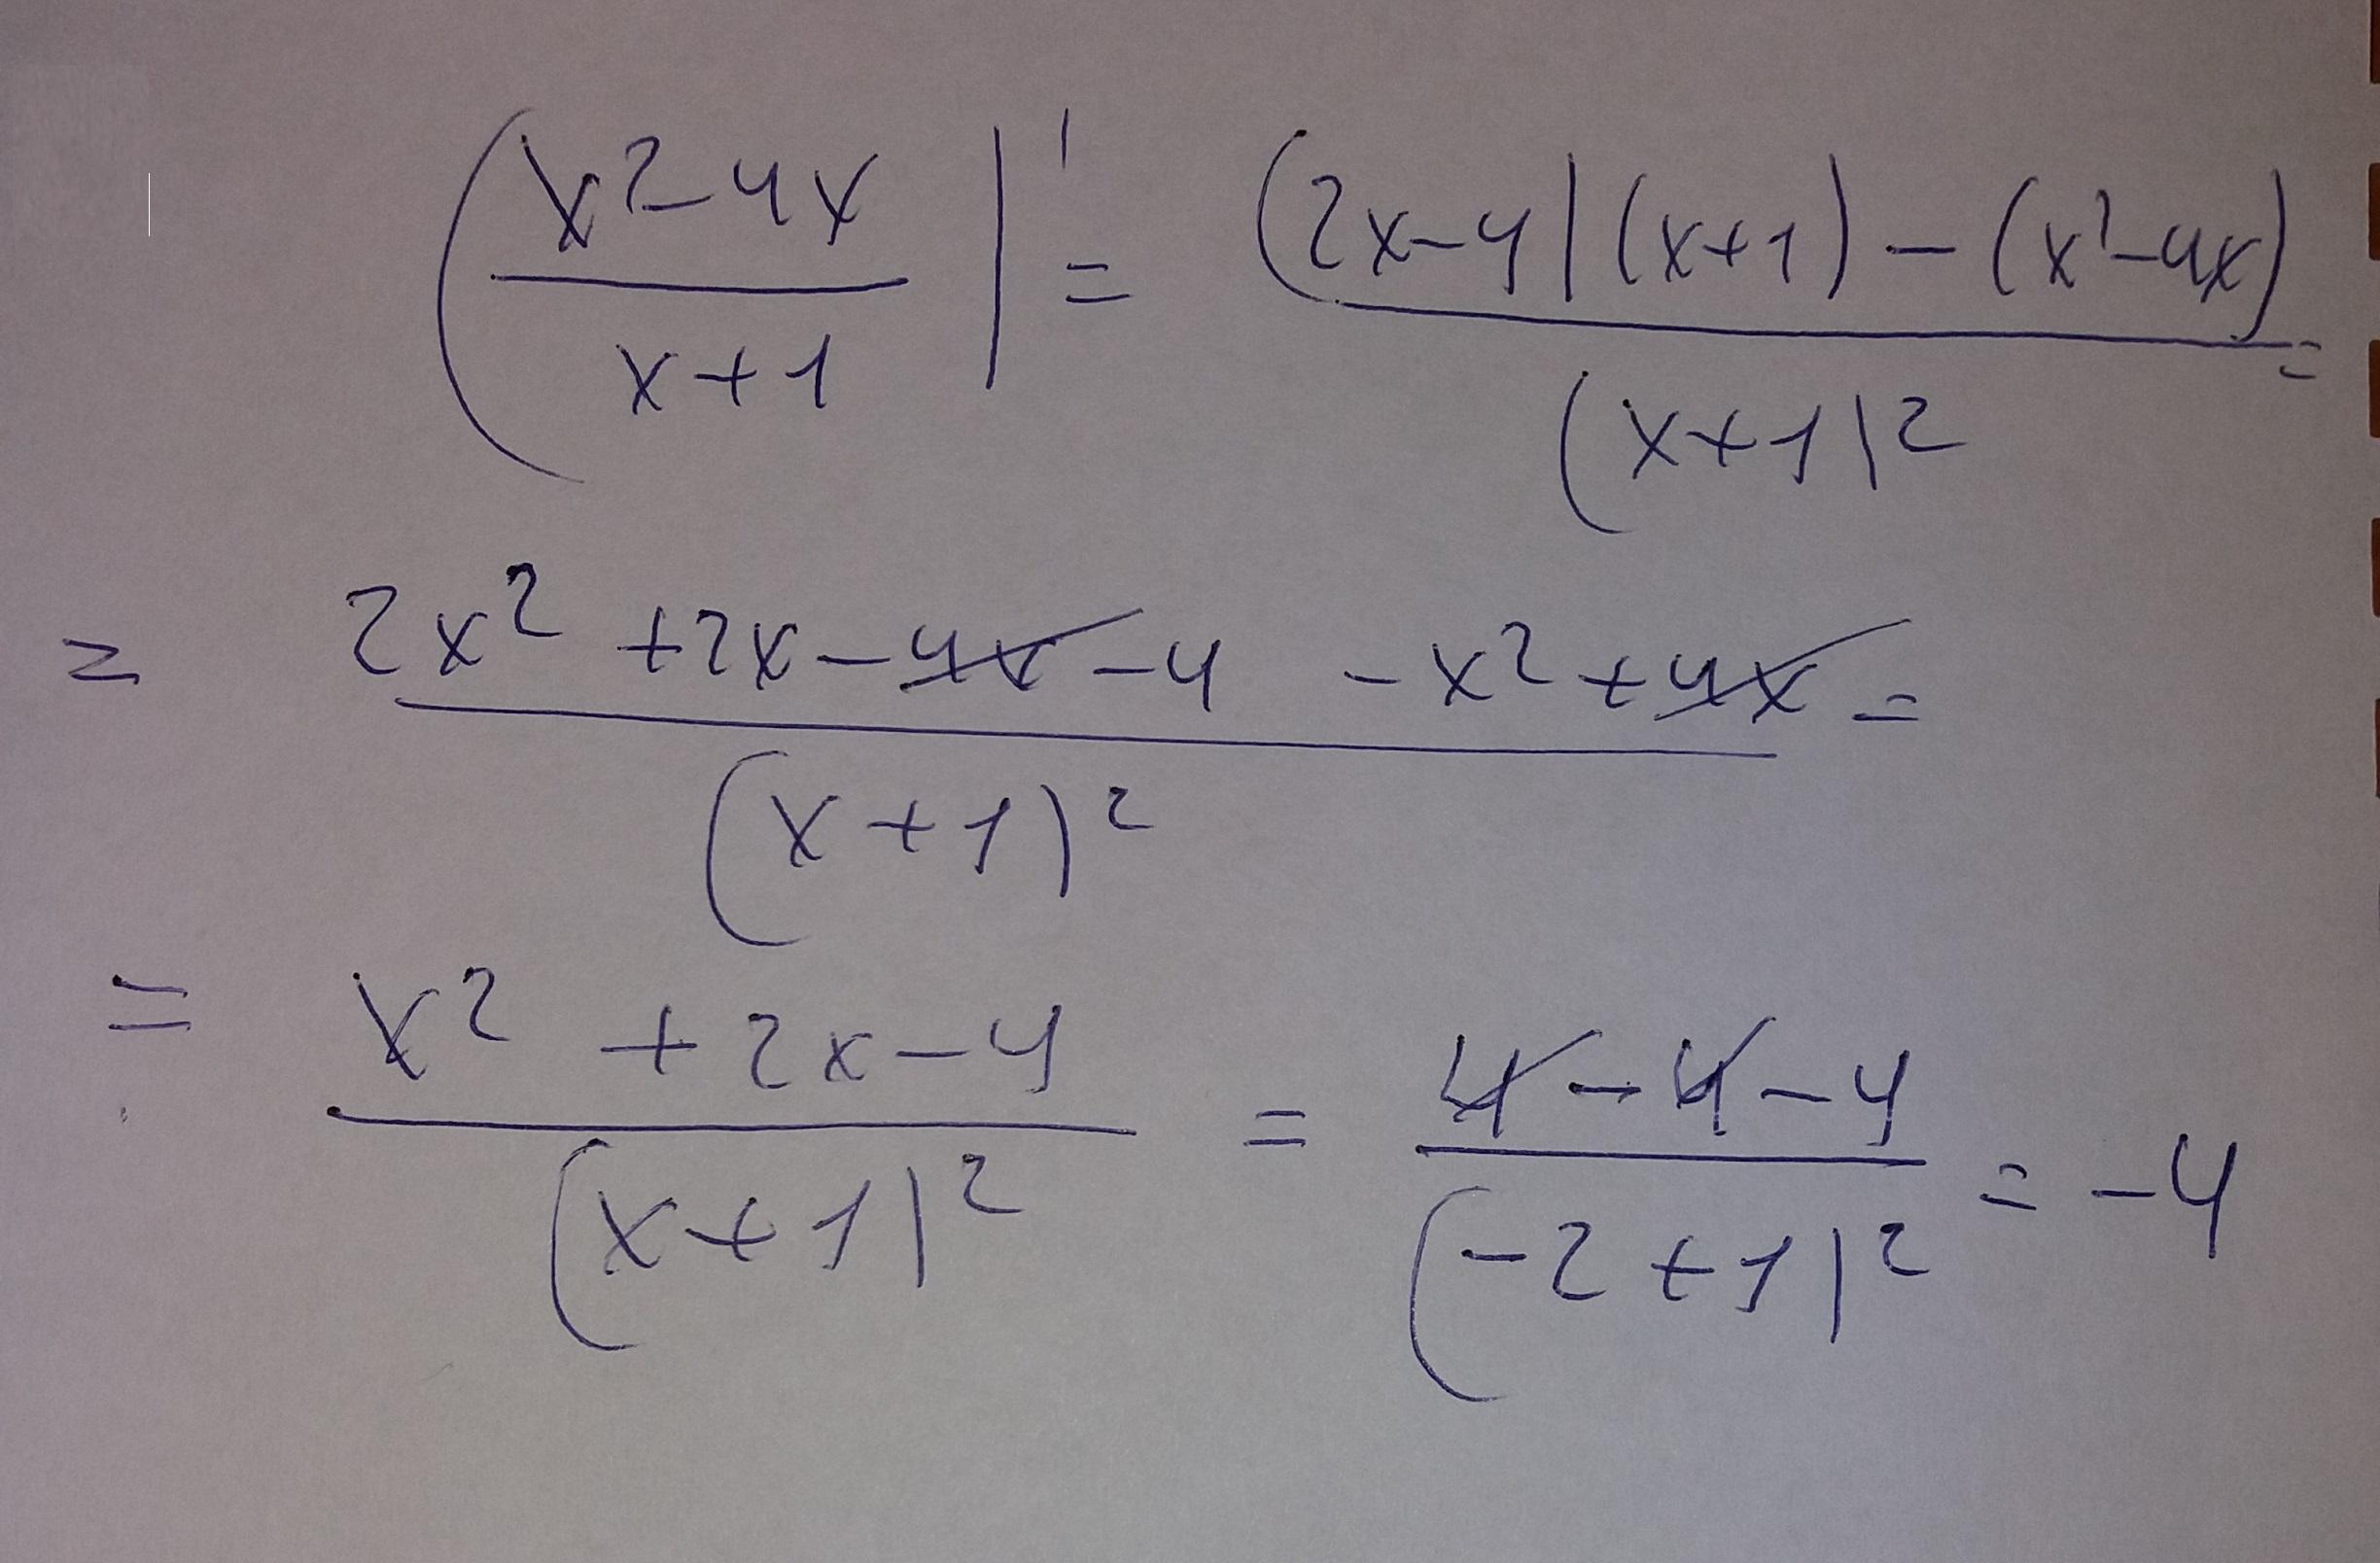 (x²-4x / x+1)' = (2x-4)(x+1) - (x²-4x) / (x+1)² =
= 2x² +2x-4x-4 -x²+4x / (x+1)² =
= x² +2x-4 / (x+1)² = 4-4-4 / (-2+1)² = -4